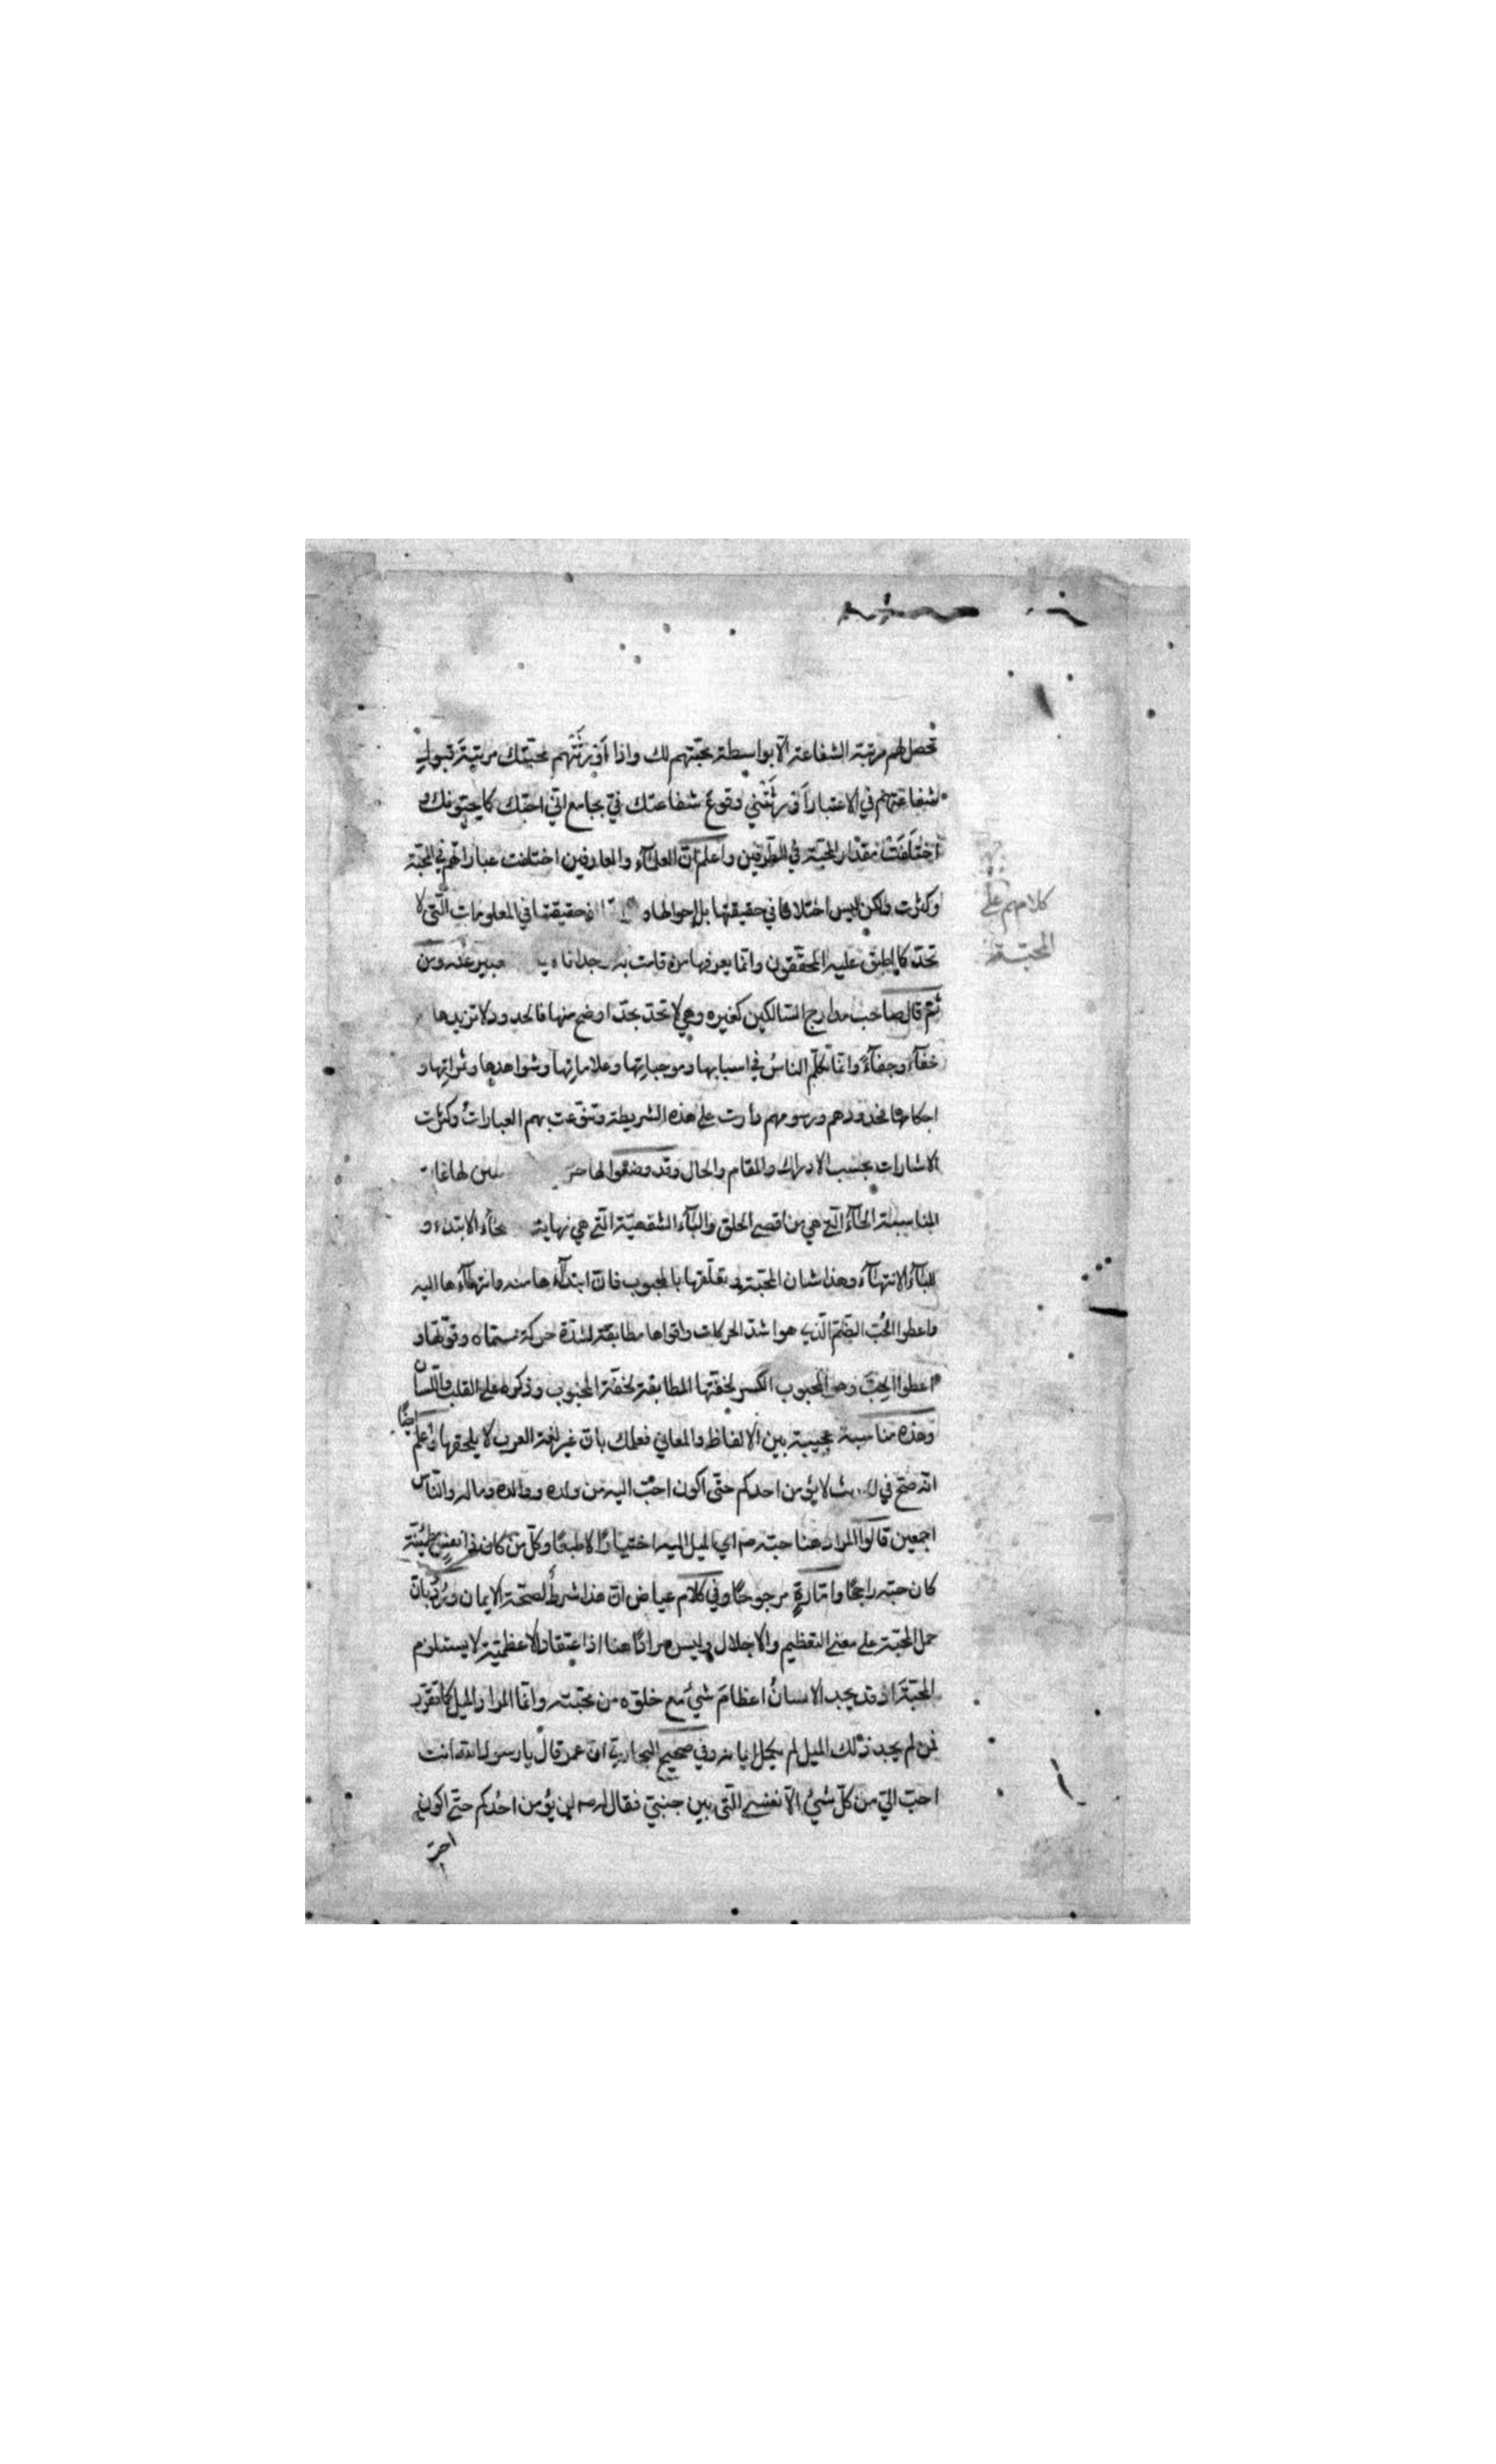 تحصل لهم مرتبة الشفاعة الّا بواسطة محبّتهم لك واذا اَوْرَثَتْهم محبّتك مرتبةَ قبولِ
شفاعتهم في الاعتبار اَوْرثَتْني وقوعَ شفاعتك فيّ بجامع انّي احبّك كما يحبّونك و
اختَلَفَتْ مقدار المحبّة في الطرفين واعلم انّ العلمآء والعارفين اختلفت عباراتهم في المحبّة
وكثرت ولكن ليس اختلافا في حقيقتها بل احوالها و حقيقتها في المعلومات الّتي لا
تحدّ كما اطبق عليه المحقّقون وانّما يعرفها من قامت به وجدانا عنه ومن
ثمّ قال صاحب مدارج السّالكين كغيره وهي لا تحدّ بحدّ اوضح منها فالحدود لا تزيدها
خفآءً وجفآءً وانّما تكلّم الناسُ في اسبابها وموجباتِها وعلاماتِها وشواهدِها وثمراتِها و
احكامها فحدودهم ورسومهم دارت على هذه الشريطة وتنوّعت بهم العباراتُ وكثرت
الاشارات بحسب الادراك والمقام والحال وقد وضعوا لها
المناسبة الحآءُ الّتي هي من اقصى الحلق والبآء الشفهيّة الّتي هي نهايته فالحآء الابتدء و
للبآءُ الانتهآء وهذا شان المحبّة وتعلّقها بالمحبوب فانّ ابتدآءها منه وانتهآءها اليه
واعطوا الحُبّ الضّمّ الّذي هو اشدّ الحركات واقواها مطابقة لشدّة حركة مسمّاه وقوّتها و
اعطوا الحِبّ وهو المحبوب الكسر لخفّتها المطابقة لخفّة المحبوب وذكره على القلب واللّسان
وهذه مناسبة عجيبة بين الالفاظ والمعاني فعلمك بانّ غير لغة العرب لا يلحقها واعلم ايضًا
انّه صحّ في الحديث لا يؤمن احدكم حتّى اكون احبّ اليه من ولده ووالده وماله والنّاس
اجمعين قالوا المراد هنا حبّه صم اي الميل اليه اختيارًا لا طبعًا وكلّ من كان ذا نفسٍ مطمئنّة
كان حبّه راجحًا وامّارةٍ مرجوحًا وفي كلام عياض انّ هذا شرطٌ لصحّة الايمان ورُدّ بانّ
حمل المحبّة على معنى التعظيم والاجلال وليس مرادًا هنا اذ اعتقاد الاعظميّة لا يستلزم
المحبّةَ اذ قد يجد الانسانُ اعظامَ شيءٍ مع خلوّه من محبّته وانّما المراد الميل كما تقرّر
فمن لم يجد ذلك الميل لم يكمل ايمانه وفي صحيح البخاريّ انّ عمر قال يا رسول الله انت
احبّ اليّ من كلّ شيءٍ الّا نفسي الّتي بين جنبيّ فقال له صم لن يؤمن احدُكم حتّى اكون
احبّ
كلامهم على
المحبّة